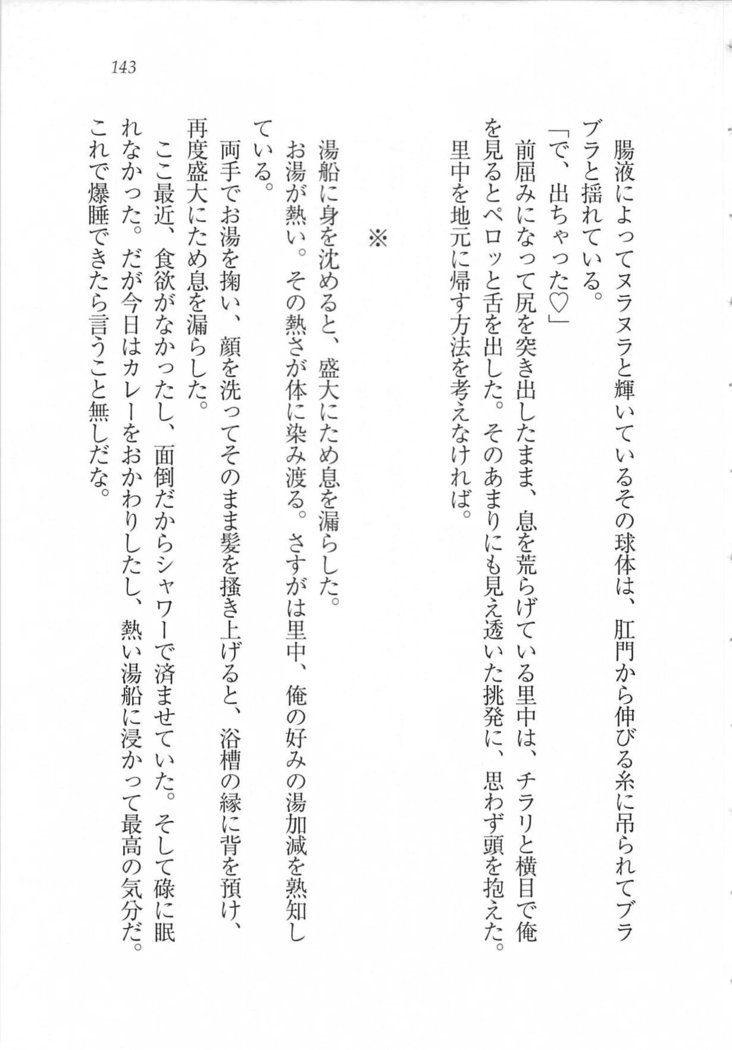 143
腸液によってヌラヌラと輝いているその球体は、肛門から伸びる糸に吊られてブラ
ブラと揺れている。
「で、出ちゃった♡」
前屈みになって尻を突き出したまま、息を荒らげている里中は、チラリと横目で俺
を見るとペロッと舌を出した。そのあまりにも見え透いた挑発に、思わず頭を抱えた。
里中を地元に帰す方法を考えなければ。
※
湯船に身を沈めると、盛大にため息を漏らした。
お湯が熱い。その熱さが体に染み渡る。さすがは里中、俺の好みの湯加減を熟知し
ている。
両手でお湯を掬い、顔を洗ってそのまま髪を掻き上げると、浴槽の縁に背を預け、
再度盛大にため息を漏らした。
ここ最近、食欲がなかったし、面倒だからシャワーで済ませていた。そして碌に眠
れなかった。だが今日はカレーをおかわりしたし、熱い湯船に浸かって最高の気分だ。
これで爆睡できたら言うこと無しだな。